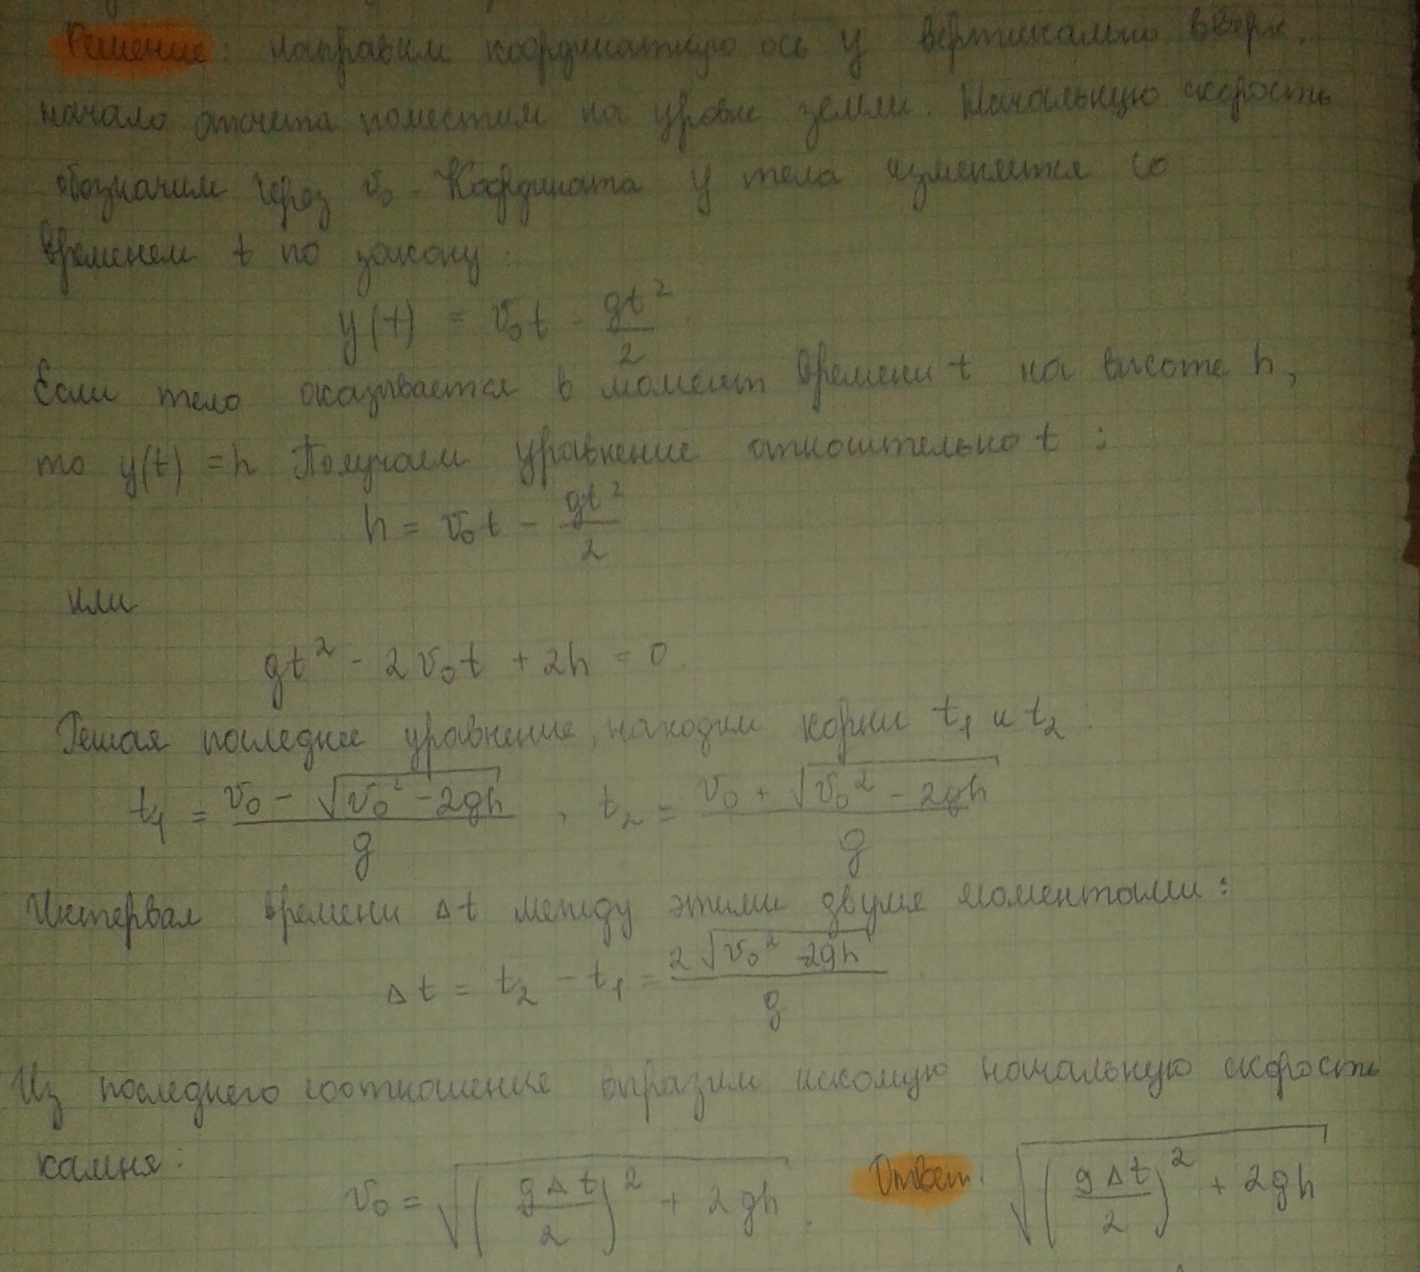 Решение: направим координатную ось y вертикально вверх.
начало отчета поместим на уровне земли. Начальную скорость
обозначим через v₀. Координата y тела изменяется со
временем t по закону:
y(t) = v₀t - gt²/2.
Если тело оказывается в момент времени t на высоте h,
то y(t) = h Получаем уравнение относительно t:
h = v₀t - gt²/2
или
gt² - 2v₀t + 2h = 0.
Решая последнее уравнение, находим корни t₁ и t₂:
t₁ = (v₀ - √(v₀² - 2gh))/g, t₂ = (v₀ + √(v₀² - 2gh))/g
Интервал времени Δt между этими двумя моментами:
Δt = t₂ - t₁ = 2√(v₀² - 2gh)/g
Из последнего соотношения выразим искомую начальную скорость
камня:
v₀ = √((gΔt/2)² + 2gh). Ответ: √((gΔt/2)² + 2gh)